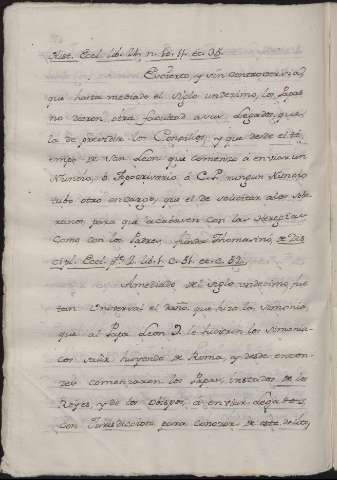 Hist. Ecel. lib. 24. n. 10. 11. et. 38.
Es cierto, y sin controversia,
que hasta mediado el siglo undezimo, los Papas
no dieron otra facultad a sus Legados que
la de presidir los Conzilios, y que desde el ti-
empo de San Leon que comenzo a enviar un
Nuncio, ò Apocrisario à C.P. ningun Nuncio
tubo otro encargo, que el de solicitar a los Sobe-
ranos, para que acabasen con las Heregias
Como con los Padres, funda Thomasino, de Dis
cipl. Eccl. pte. 2. lib. 1. C. 51. et. C. 52.
Amediado del siglo undezimo, fue
tan Universal el daño que hizo la Simonia,
que al Papa Leon 9. le hicieron los Simonia-
cos salir huyendo de Roma, y desde enton-
zes comenzaron los Papas, instados de los
Reyes, y de los Obispos, à enviar Legados,
con Jurisdiccion para conocer de este delito,